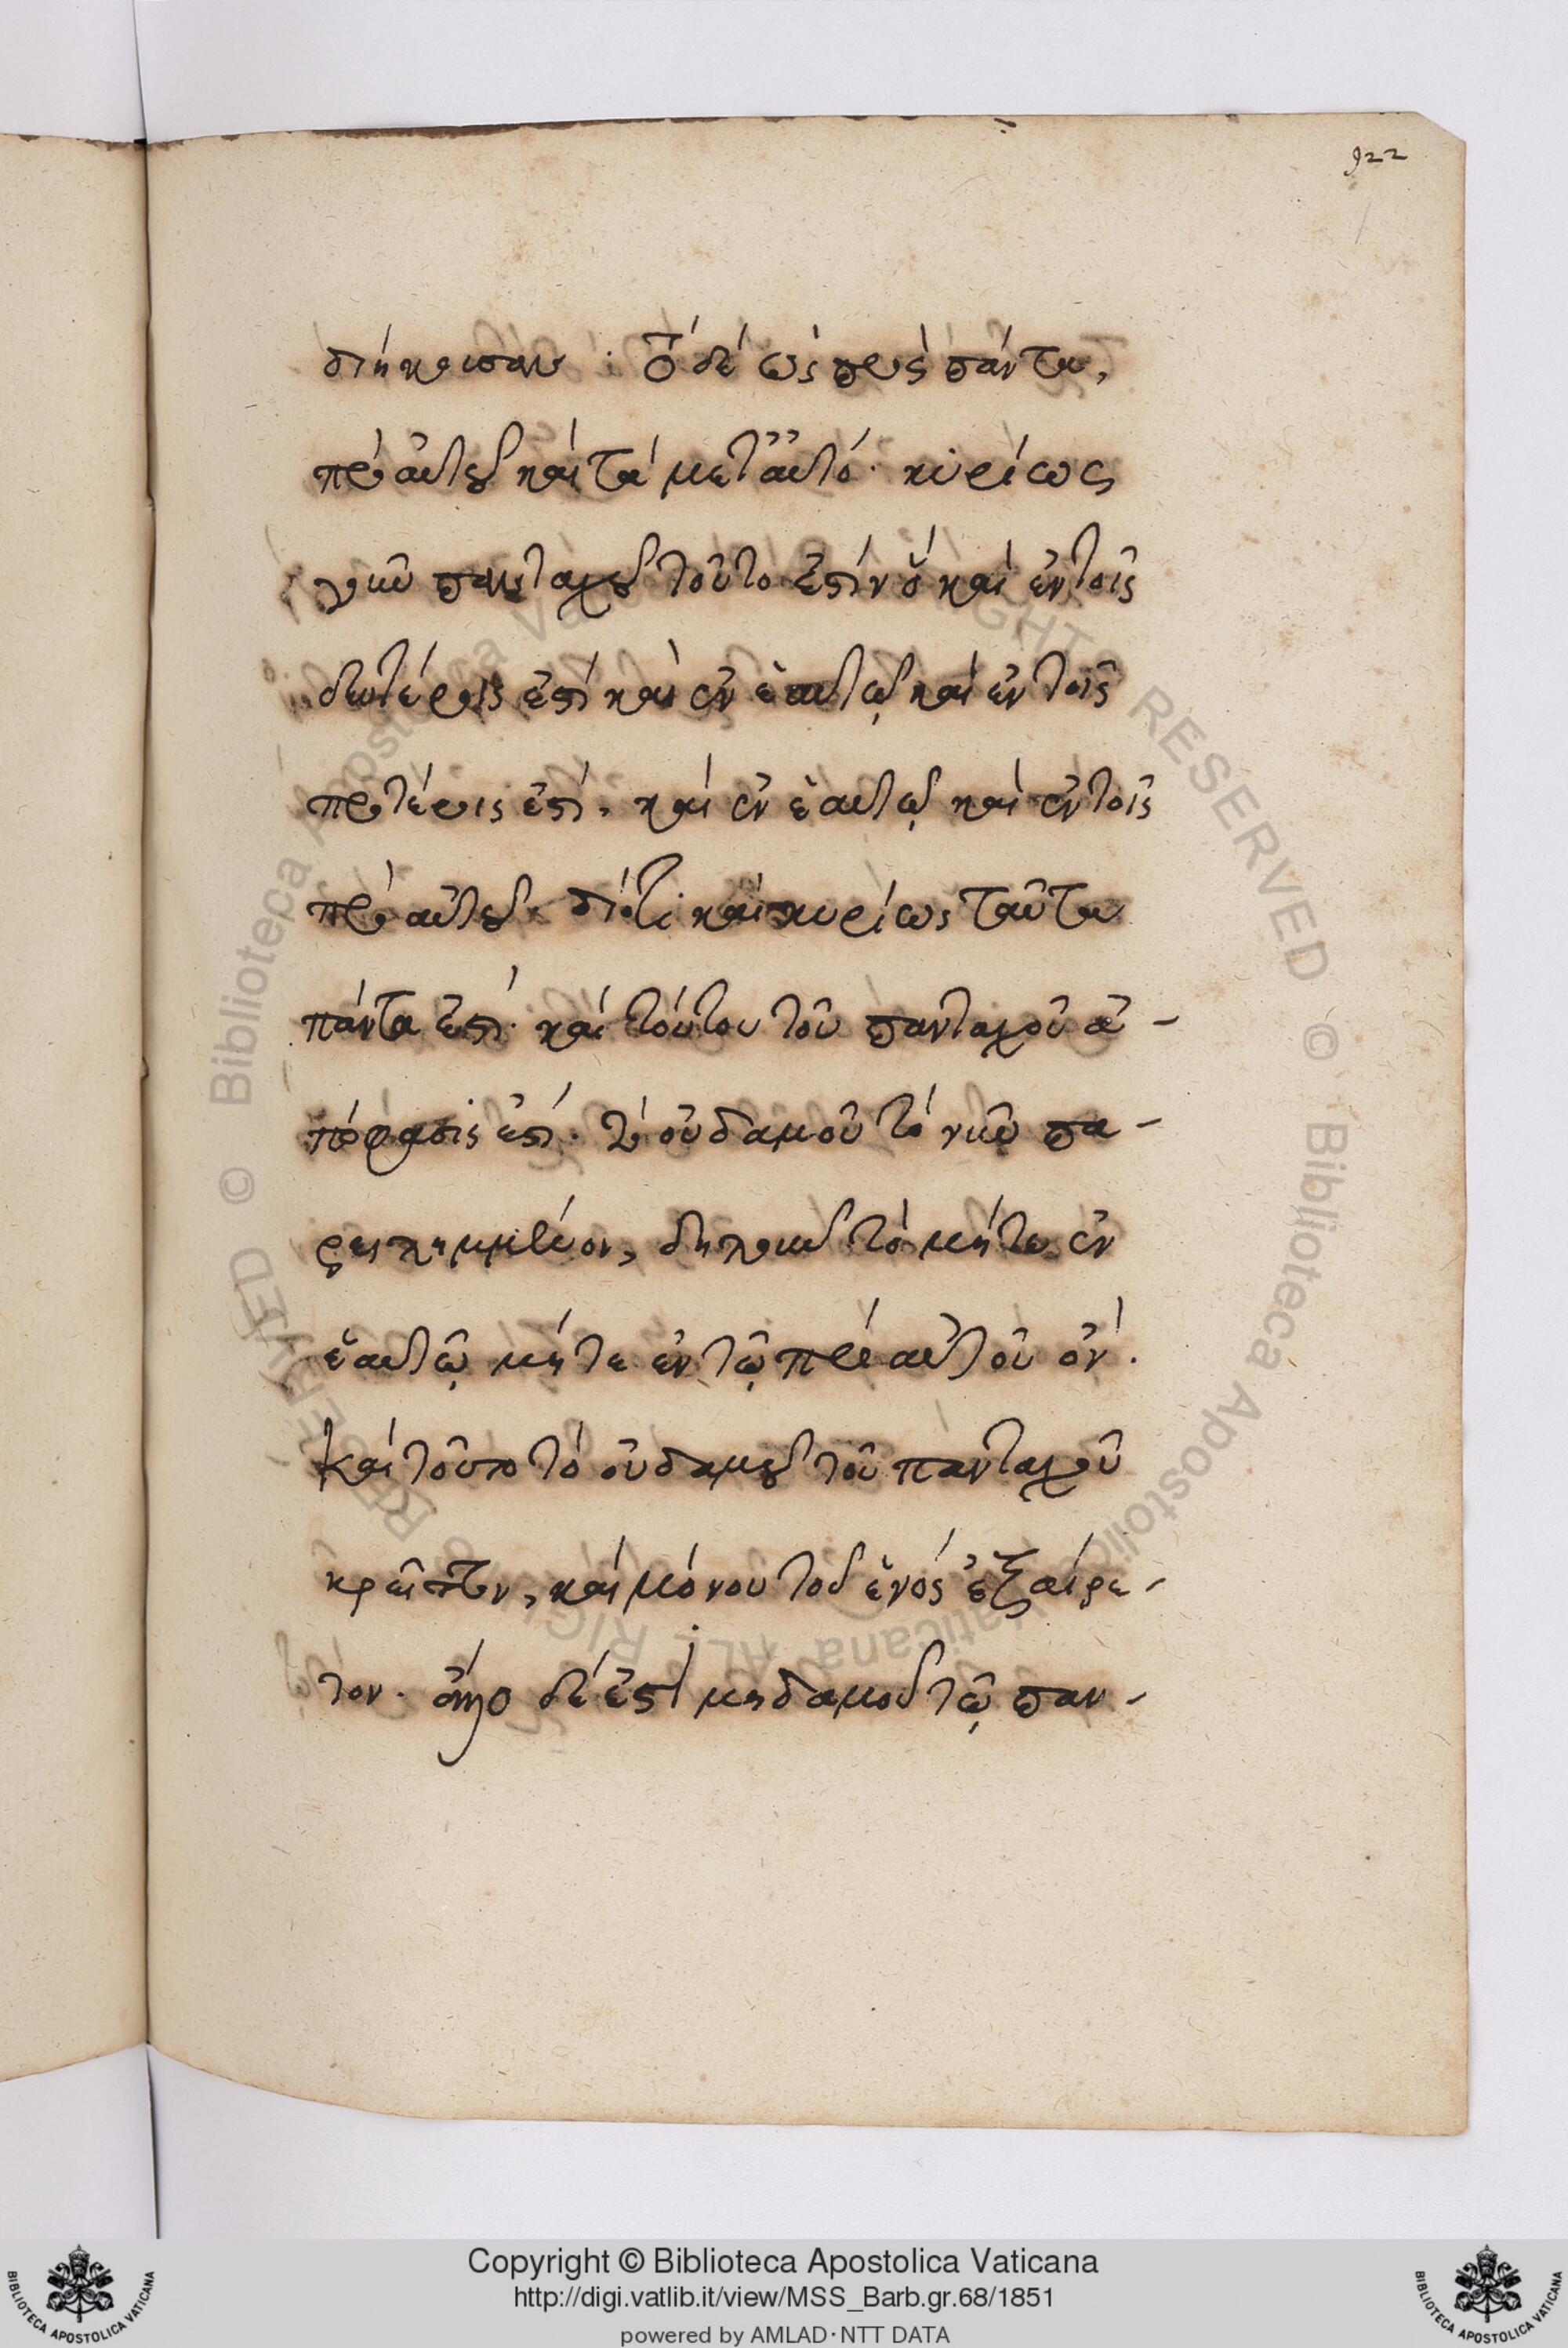 922
διήκρισαν · ὃ δὲ ὡς πρὸς πάντα,
πρὸ αὐτοῦ καὶ τὰ μετ' αὐτό· κυρίως
γὰρ πανταχοῦ τοῦτό ἐστιν ὃ καὶ ἐν τοῖς
δευτέροις ἐστὶ καὶ ἐν ἑαυτῷ καὶ ἐν τοῖς
προτέροις ἐστί, καὶ ἐν ἑαυτῷ καὶ ἐν τοῖς
πρὸ αὐτοῦ· διότι καὶ κυρίως ταῦτα
πάντα ἐστί· καὶ τούτου τοῦ πανταχοῦ ἀ-
πόφασίς ἐστι· τὸ οὐδαμοῦ τὸ νῦν πα-
ρειλημμένον, δηλοῦν τὸ μήτε ἐν
ἑαυτῷ μήτε ἐν τῷ πρὸ αὐτοῦ ὄν·
καὶ τοῦτο τὸ οὐδαμοῦ τοῦ πανταχοῦ
κρεῖττον, καὶ μόνου τοῦ ἑνὸς ἐξαίρε-
τον· ἄλλο δέ ἐστι μηδαμοῦ τῷ παν-
© Biblioteca Apostolica Vaticana ALL RIGHTS RESERVED
Copyright © Biblioteca Apostolica Vaticana
http://digi.vatlib.it/view/MSS_Barb.gr.68/1851
powered by AMLAD·NTT DATA
BIBLIOTECA APOSTOLICA VATICANA
BIBLIOTECA APOSTOLICA VATICANA